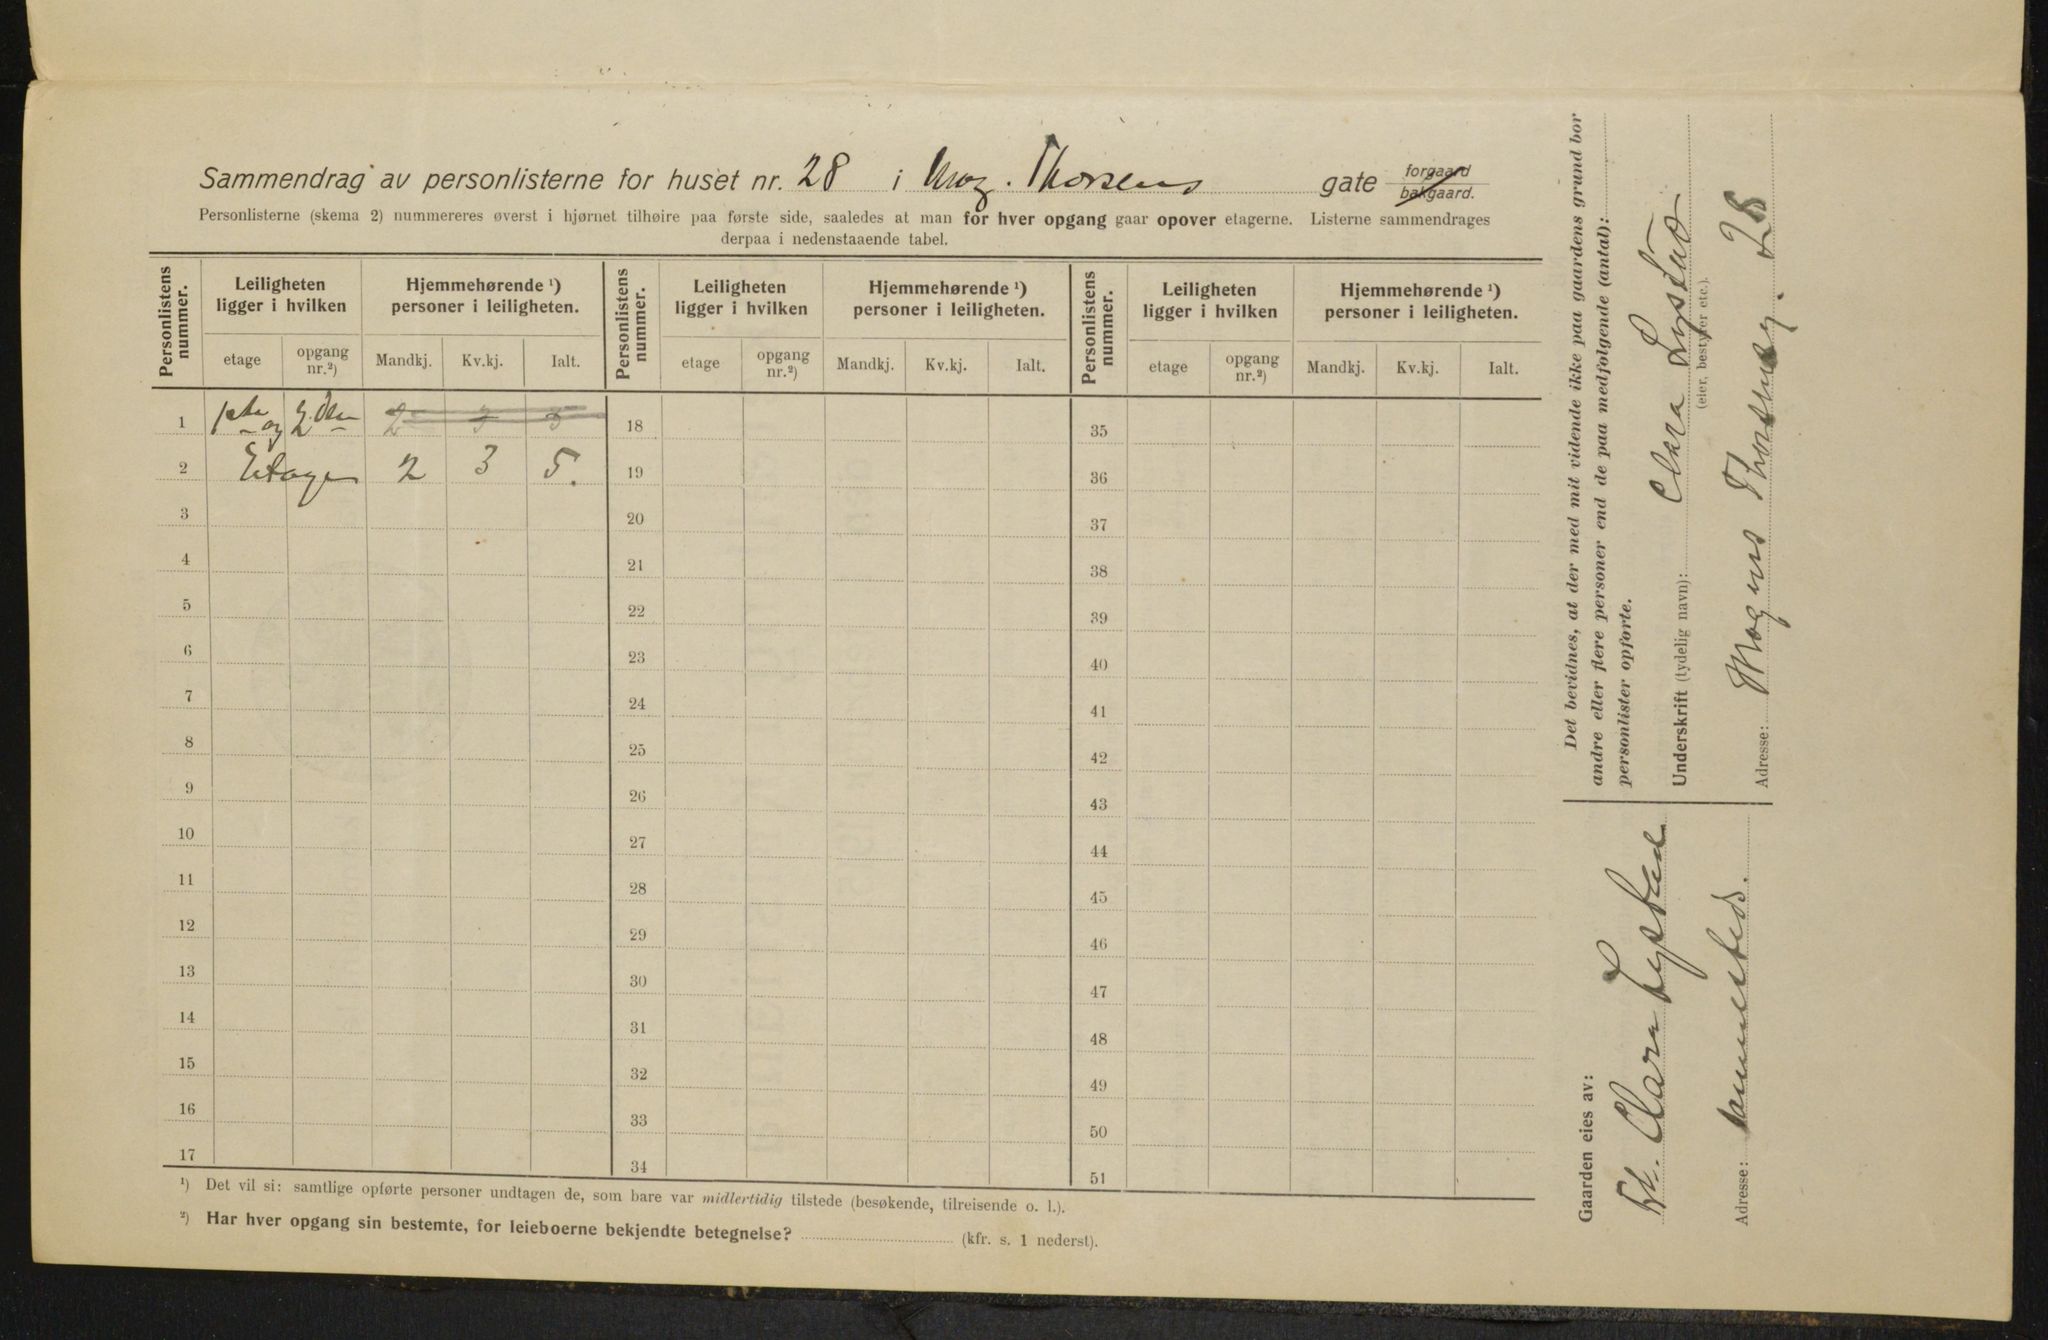 Sammendrag av personlisterne for huset nr. 28 i Mog. Thorsens gate forgaard bakgaard.
Personlisterne (skema 2) nummereres øverst i hjørnet tilhøire paa første side, saaledes at man for hver opgang gaar opover etagerne. Listerne sammendrages
derpaa i nedenstaaende tabel.
Personlistens nummer. Leiligheten ligger i hvilken Hjemmehørende ¹) personer i leiligheten. Personlistens nummer. Leiligheten ligger i hvilken Hjemmehørende ¹) personer i leiligheten. Personlistens nummer. Leiligheten ligger i hvilken Hjemmehørende ¹) personer i leiligheten.
etage opgang nr.²) Mandkj. Kv.kj. Ialt. etage opgang nr.²) Mandkj. Kv.kj. Ialt. etage opgang nr.²) Mandkj. Kv.kj. Ialt.
1 1ste og 2den 2 3 5 18 35
2 Etage 2 3 5. 19 36
3 20 37
4 21 38
5 22 39
6 23 40
7 24 41
8 25 42
9 26 43
10 27 44
11 28 45
12 29 46
13 30 47
14 31 48
15 32 49
16 33 50
17 34 51
¹) Det vil si: samtlige opførte personer undtagen de, som bare var midlertidig tilstede (besøkende, tilreisende o. l.).
²) Har hver opgang sin bestemte, for leieboerne bekjendte betegnelse? (kfr. s. 1 nederst).
Det bevidnes, at der med mit vidende ikke paa gaardens grund bor
andre eller flere personer end de paa medfølgende (antal):
personlister opførte.
Underskrift (tydelig navn): Clara Lystad
(eier, bestyrer etc.).
Adresse: Mogens Thorsensg. 28
Gaarden eies av:
Frk. Clara Lystad
Adresse: sammesteds.